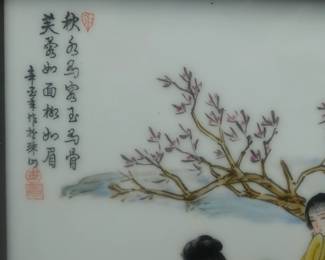 秋水为容玉为骨
芙蓉如面柳如眉
辛酉年作於珠山